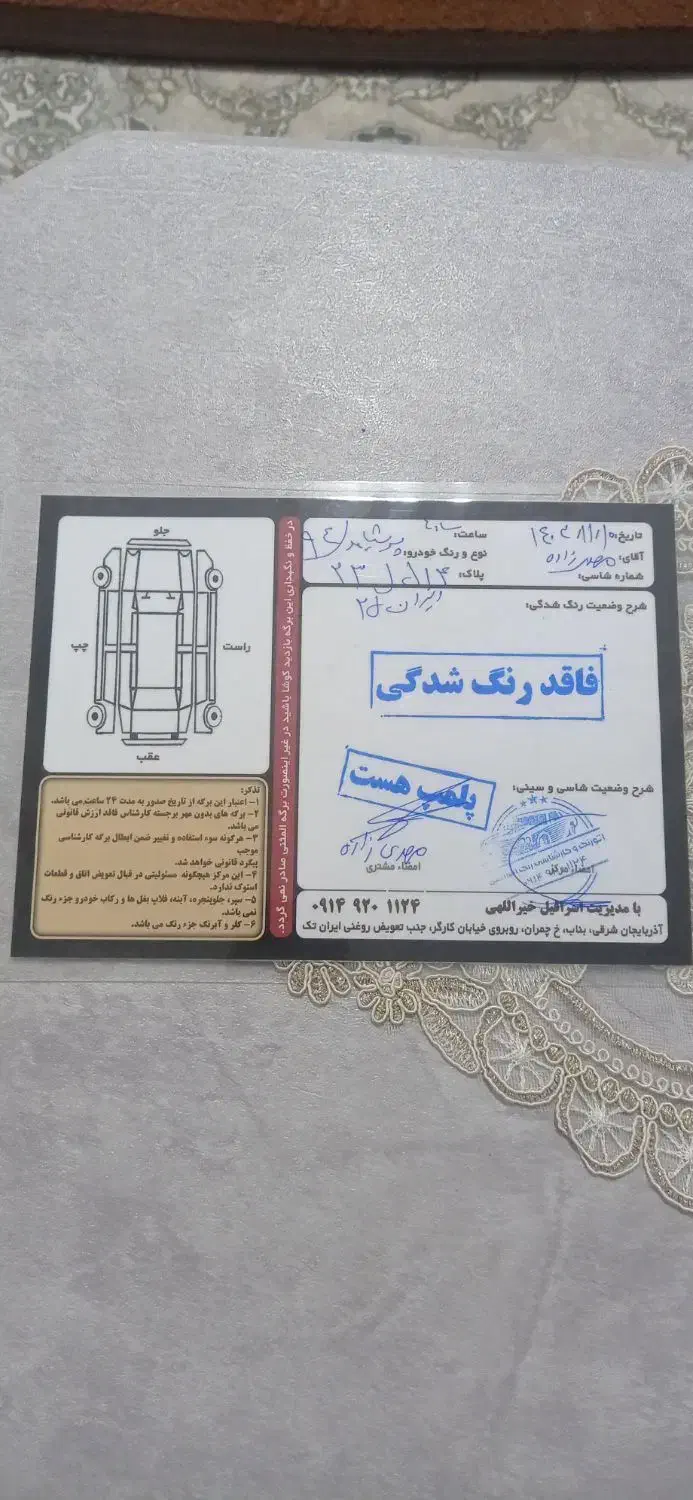 تاریخ: ۱۴۰۳/۸/۱۰
ساعت:
آقای: مهدی زاده
نوع و رنگ خودرو:
شماره شاسی:
پلاک:
ایران
شرح وضعیت رنگ شدگی:
فاقد رنگ شدگی
شرح وضعیت شاسی و سینی:
پلمپ هست
مهدی زاده
امضاء مشتری
با مدیریت اسرافیل خیراللهی
۰۹۱۴ ۹۲۰ ۱۱۲۴
آذربایجان شرقی، بناب، خ چمران، روبروی خیابان کارگر، جنب تعویض روغنی ایران تک
در حفظ و نگهداری این برگه بازدید کوشا باشید در غیر اینصورت برگه المثنی صادر نمی گردد.
جلو
راست
چپ
عقب
تذکر:
۱- اعتبار این برگه از تاریخ صدور به مدت ۲۴ ساعت می باشد.
۲- برگه های بدون مهر برجسته کارشناس فاقد ارزش قانونی
می باشد.
۳- هرگونه سوء استفاده و تغییر ضمن ابطال برگه کارشناسی
موجب
پیگرد قانونی خواهد شد.
۴- این مرکز هیچگونه مسئولیتی در قبال تعویض اتاق و قطعات
استوک ندارد.
۵- سپر، جلوپنجره، آینه، قلاب بغل ها و رکاب خودرو جزء رنگ
نمی باشد.
۶- کلر و آبرنگ جزء رنگ می باشد.